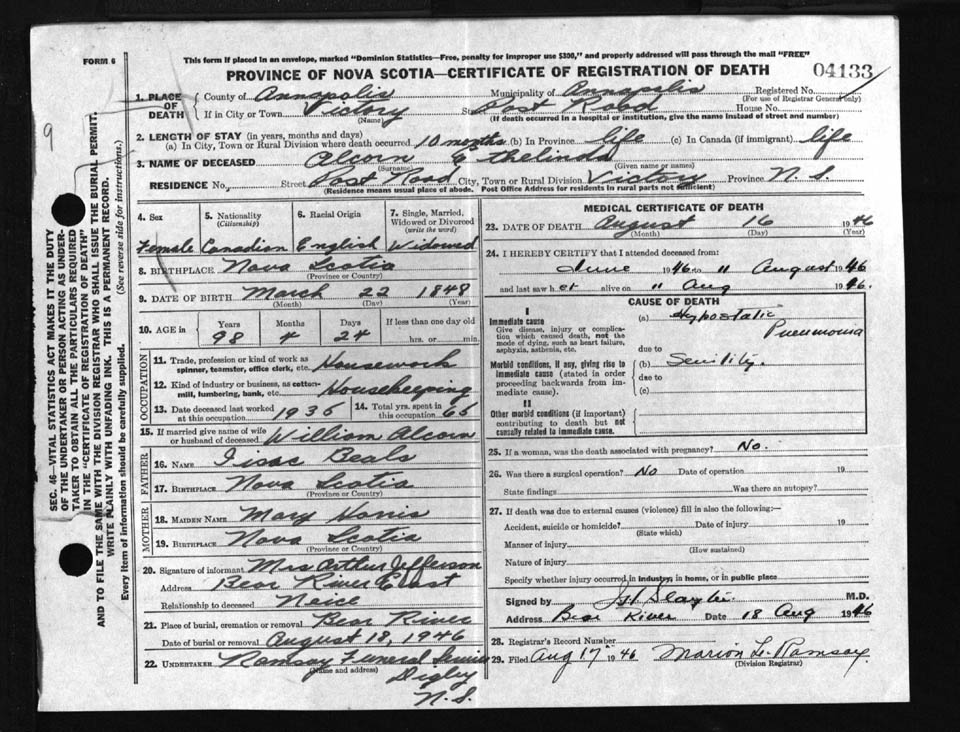 FORM 6
This form if placed in an envelope, marked "Dominion Statistics—Free, penalty for improper use $300," and properly addressed will pass through the mail "FREE"
PROVINCE OF NOVA SCOTIA—CERTIFICATE OF REGISTRATION OF DEATH
04133
9
1. PLACE OF DEATH
County of Annapolis Municipality of Annapolis Registered No.
(For use of Registrar General only)
If in City or Town Victory Street Post Road House No.
(Name) (If death occurred in a hospital or institution, give the name instead of street and number)
2. LENGTH OF STAY (in years, months and days)
(a) In City, Town or Rural Division where death occurred 10 months (b) In Province life (c) In Canada (if immigrant) life
3. NAME OF DECEASED Alcorn Ethelinda
(Surname) (Given name or names)
RESIDENCE No. Street Post Road City, Town or Rural Division Victory Province N.S.
(Residence means usual place of abode. Post Office Address for residents in rural parts not sufficient)
4. Sex 5. Nationality (Citizenship) 6. Racial Origin 7. Single, Married, Widowed or Divorced (write the word)
Female Canadian English Widowed
8. BIRTHPLACE Nova Scotia
(Province or Country)
9. DATE OF BIRTH March 22 1848
(Month) (Day) (Year)
10. AGE in Years Months Days If less than one day old
98 4 24 hrs. or min.
OCCUPATION
11. Trade, profession or kind of work as spinner, teamster, office clerk, etc. Housework
12. Kind of industry or business, as cotton-mill, lumbering, bank, etc. Housekeeping
13. Date deceased last worked at this occupation 1936 14. Total yrs. spent in this occupation 65
15. If married give name of wife or husband of deceased William Alcorn
FATHER
16. NAME Isaac Beals
17. BIRTHPLACE Nova Scotia
(Province or Country)
MOTHER
18. MAIDEN NAME Mary Harris
19. BIRTHPLACE Nova Scotia
(Province or Country)
20. Signature of informant Mrs Arthur Jefferson
Address Bear River East
Relationship to deceased Neice
21. Place of burial, cremation or removal Bear River
Date of burial or removal August 18, 1946
22. UNDERTAKER Ramsay Funeral Service
(Name and address)
Digby
N.S.
MEDICAL CERTIFICATE OF DEATH
23. DATE OF DEATH August 16 1946
(Month) (Day) (Year)
24. I HEREBY CERTIFY that I attended deceased from:
June 1946 to " August 1946
and last saw her alive on " Aug 1946.
CAUSE OF DEATH
I
Immediate cause
Give disease, injury or complication which caused death, not the mode of dying, such as heart failure, asphyxia, asthenia, etc.
(a) Hypostatic
Pneumonia
due to
Morbid conditions, if any, giving rise to immediate cause (stated in order proceeding backwards from immediate cause).
(b) Senility.
due to
(c)
II
Other morbid conditions (if important) contributing to death but not causally related to immediate cause.
25. If a woman, was the death associated with pregnancy? No.
26. Was there a surgical operation? No Date of operation 19
State findings Was there an autopsy?
27. If death was due to external causes (violence) fill in also the following:—
Accident, suicide or homicide? Date of injury 19
(State which)
Manner of injury
(How sustained)
Nature of injury
Specify whether injury occurred in industry, in home, or in public place
Signed by Slayter M.D.
Address Bear River Date 18 Aug 1946
28. Registrar's Record Number
29. Filed Aug 17 1946 Marion L. Ramsay
(Division Registrar)
SEC. 46—VITAL STATISTICS ACT MAKES IT THE DUTY
OF THE UNDERTAKER OR PERSON ACTING AS UNDER-
TAKER TO OBTAIN ALL THE PARTICULARS REQUIRED
IN THE "CERTIFICATE OF REGISTRATION OF DEATH"
AND TO FILE THE SAME WITH THE DIVISION REGISTRAR WHO SHALL ISSUE THE BURIAL PERMIT.
WRITE PLAINLY WITH UNFADING INK. THIS IS A PERMANENT RECORD.
Every item of information should be carefully supplied. (See reverse side for instructions.)